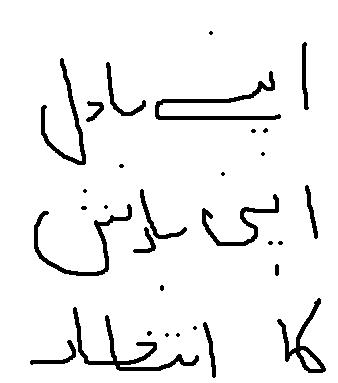 اپنے بادل
اپنی بارش
کا انتظار